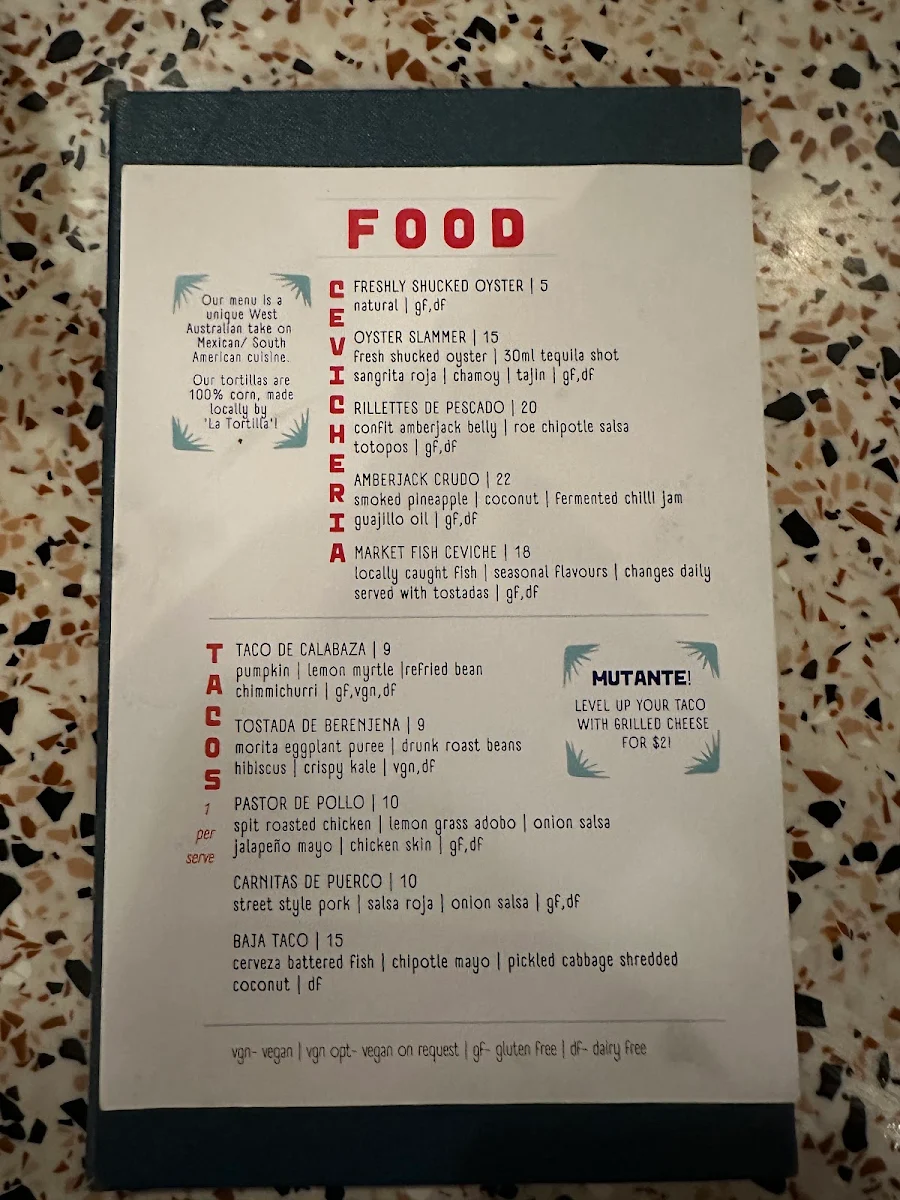 FOOD
Our menu is a
unique West
Australian take on
Mexican/ South
American cuisine.
Our tortillas are
100% corn, made
locally by
'La Tortilla'!
CEVICHERIA
FRESHLY SHUCKED OYSTER | 5
natural | gf,df
OYSTER SLAMMER | 15
fresh shucked oyster | 30ml tequila shot
sangrita roja | chamoy | tajin | gf,df
RILLETTES DE PESCADO | 20
confit amberjack belly | roe chipotle salsa
totopos | gf,df
AMBERJACK CRUDO | 22
smoked pineapple | coconut | fermented chilli jam
guajillo oil | gf,df
MARKET FISH CEVICHE | 18
locally caught fish | seasonal flavours | changes daily
served with tostadas | gf,df
TACOS
1
per
serve
TACO DE CALABAZA | 9
pumpkin | lemon myrtle |refried bean
chimmichurri | gf,vgn,df
TOSTADA DE BERENJENA | 9
morita eggplant puree | drunk roast beans
hibiscus | crispy kale | vgn,df
PASTOR DE POLLO | 10
spit roasted chicken | lemon grass adobo | onion salsa
jalapeño mayo | chicken skin | gf,df
CARNITAS DE PUERCO | 10
street style pork | salsa roja | onion salsa | gf,df
BAJA TACO | 15
cerveza battered fish | chipotle mayo | pickled cabbage shredded
coconut | df
MUTANTE!
LEVEL UP YOUR TACO
WITH GRILLED CHEESE
FOR $2!
vgn- vegan | vgn opt- vegan on request | gf- gluten free | df- dairy free